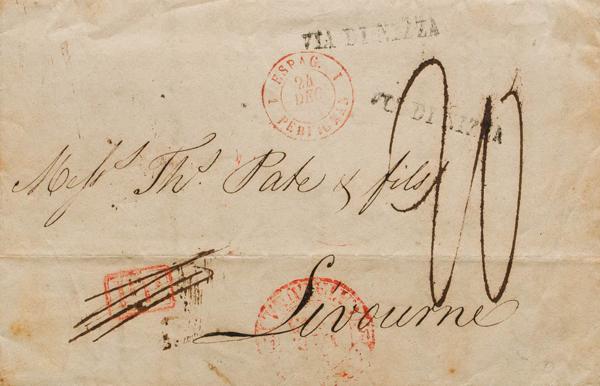 VIA DI NIZZA
1 ESPAG. 1
24
DEC
PERPIGNAN
DI NIZZA
20
Messrs Ths Pate & fils
Livourne